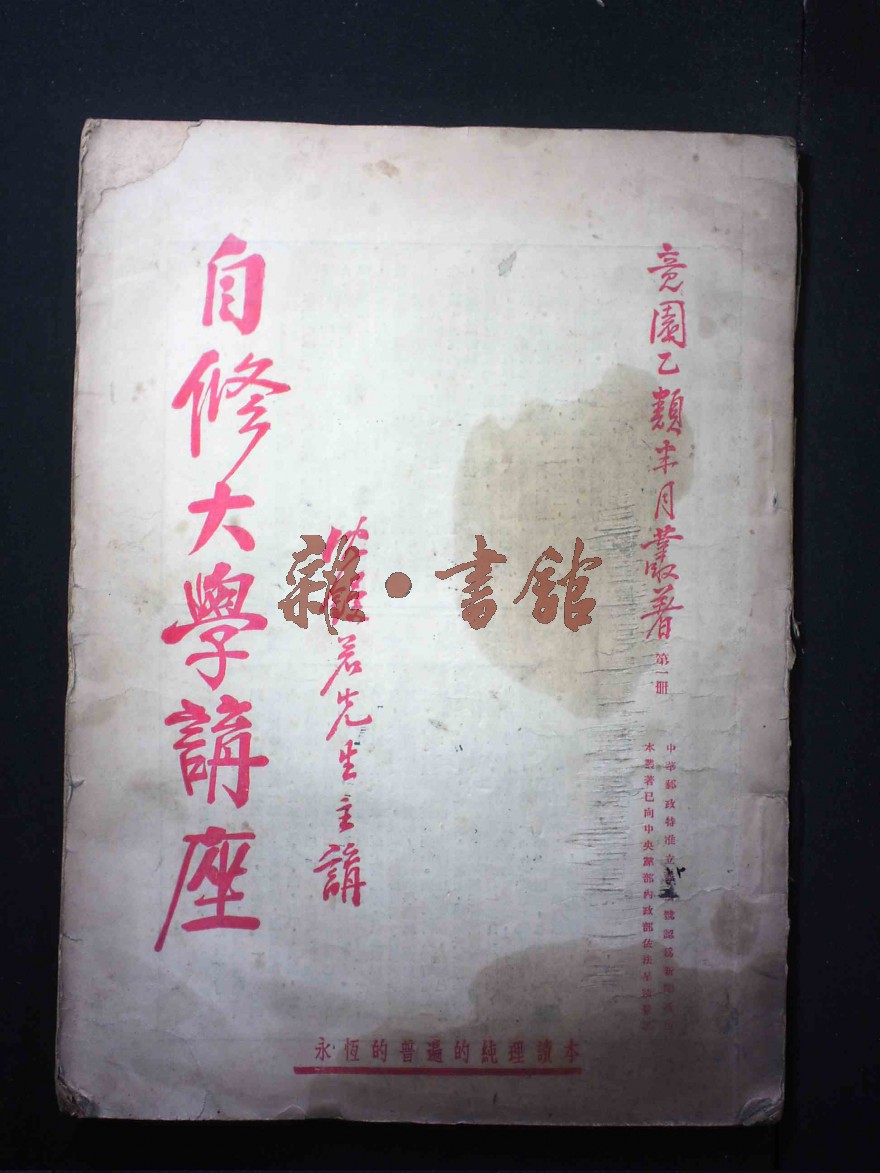 竟園乙類半月叢著 第一冊
中華郵政特准立
本叢著已向中央黨部內政部依法呈請登記
若先生主講
自修大學講座
雜·書館
永恆的普遍的純理讀本